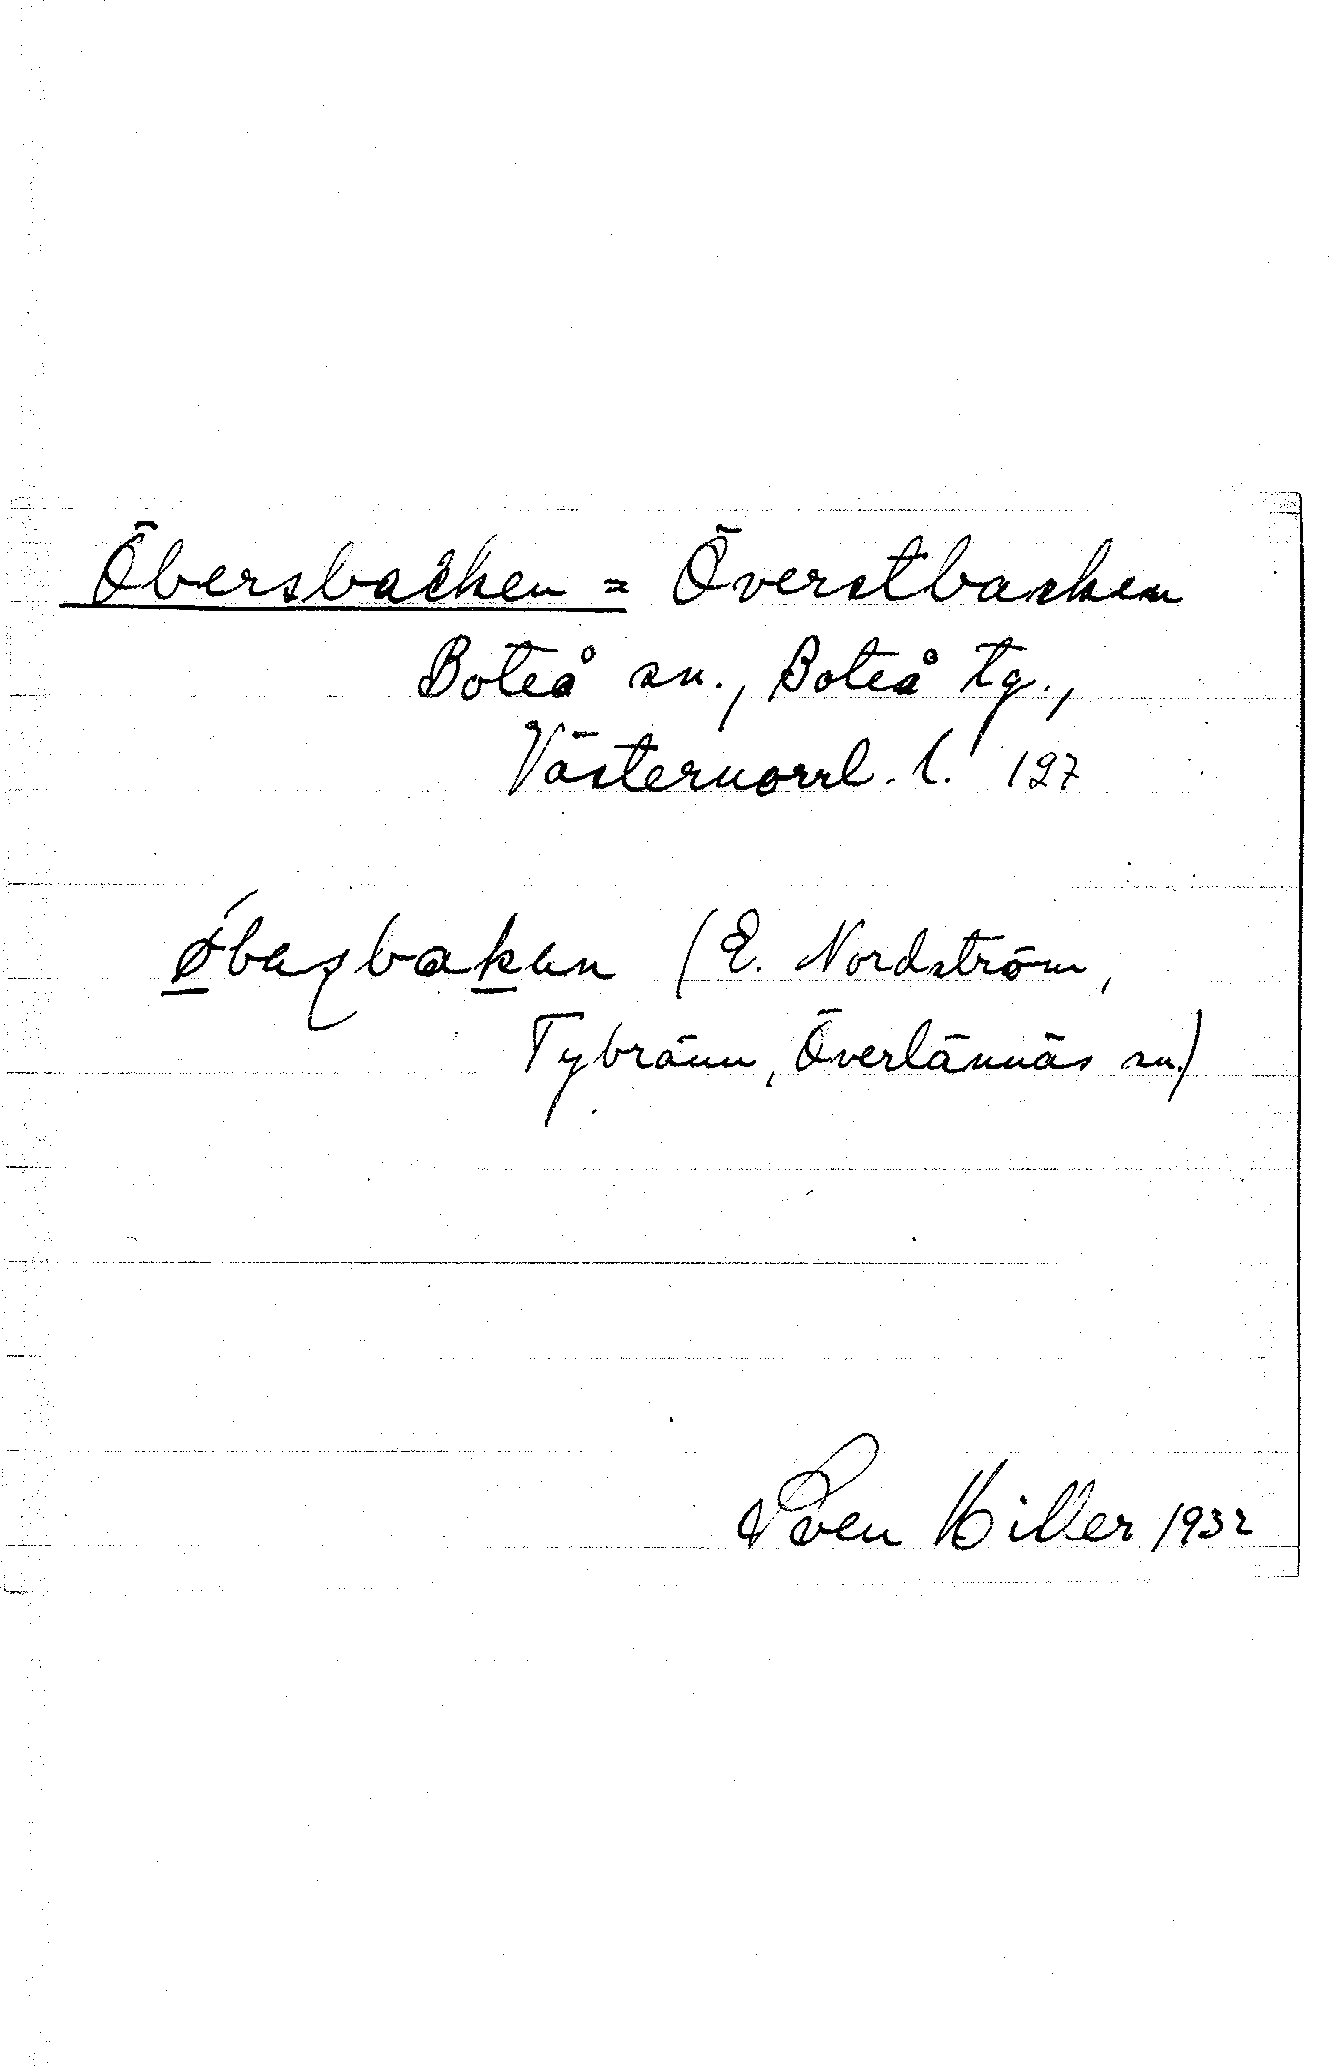 Öbersbacken = Överstbacken
Boteå sn., Boteå tg.,
Västernorrl. l. 127
(E. Nordström,
Tybränn, Överlännäs sn.)
Sven Hiller 1932